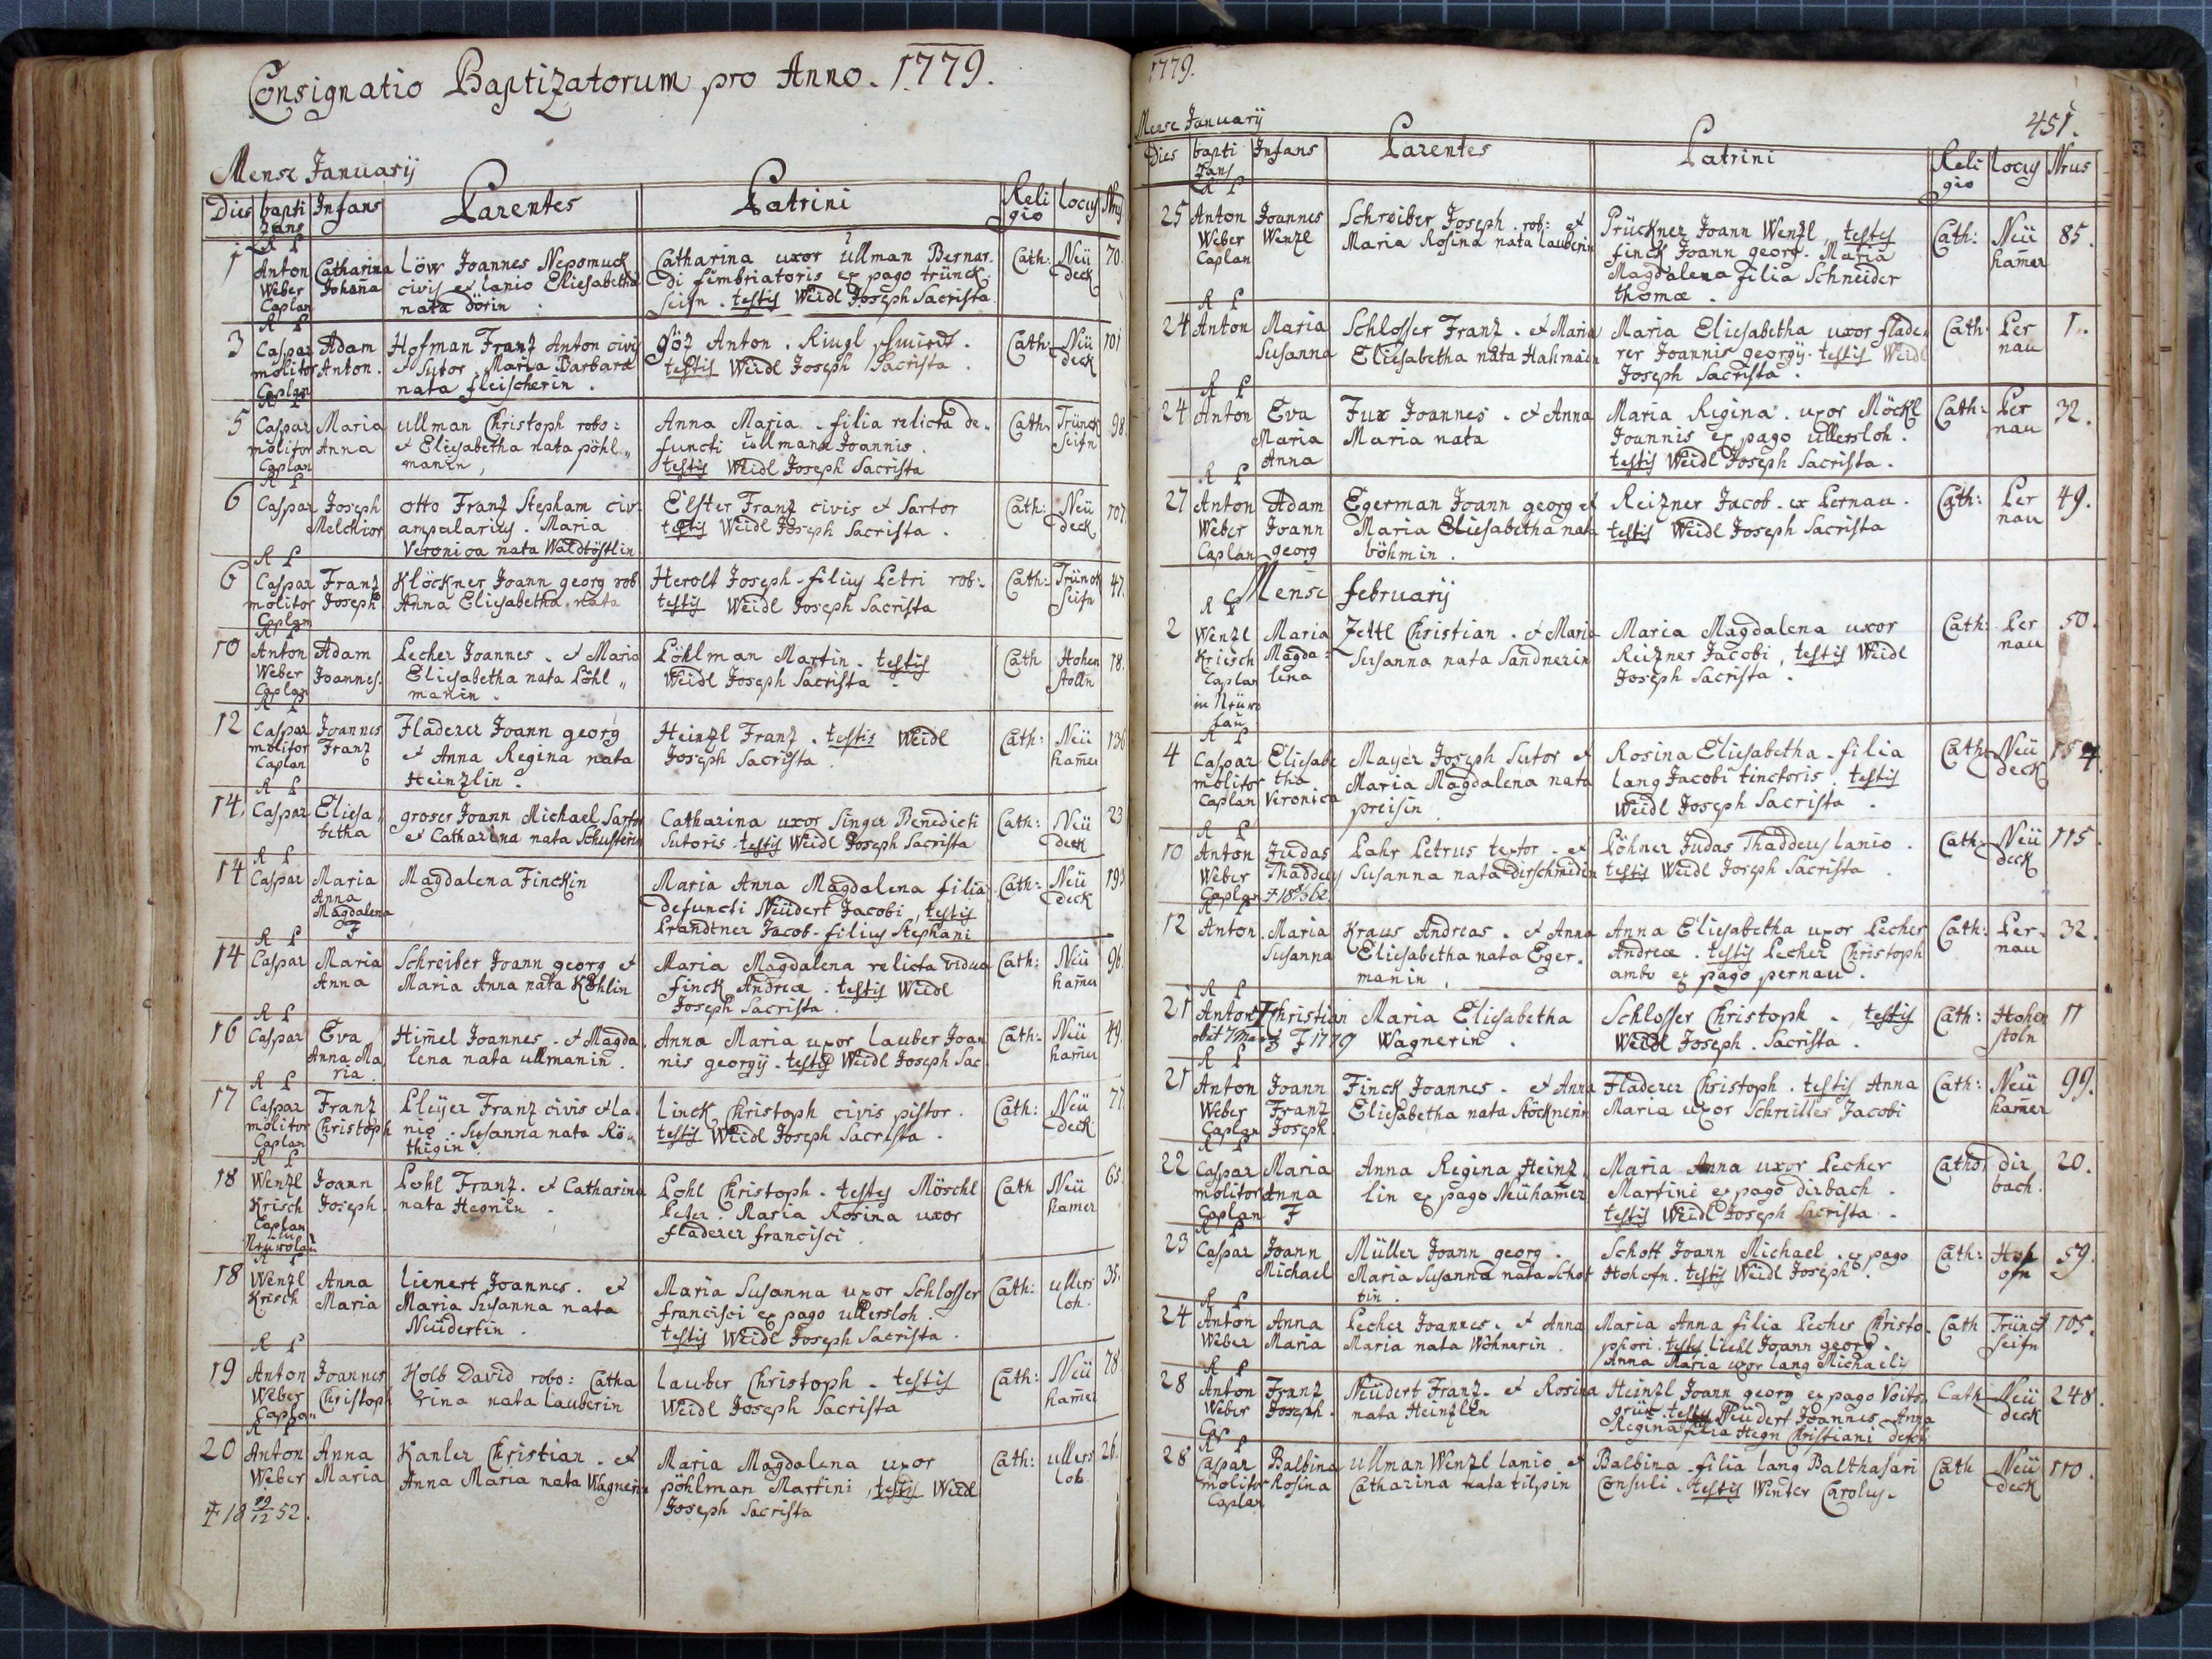 Consignatio Baptizatorum pro Anno. 1779.
Mense Januarij
Dies bapti zans Infans Parentes Patrini Reli gio locus Nrus
R P
1 Anton Catharina löw Joannes Nepomuck Catharina uxor ullman Bernar. Cath: Neü 70.
Weber Johana civis et lanio Eliesabetha di fimbriatoris ex pago trünck deck
Caplan nata dörin seifn. testis Weidl Joseph Sacrista
R P
3 Caspar Adam Hofman Franz Anton civis göz Anton. Ringl schmidt. Cath: Neü 101
molitor Anton. et Sutor. Maria Barbara testis Weidl Joseph Sacrista. deck
Caplan nata fleischerin.
R P
5 Caspar Maria ullman Christoph robo: Anna Maria. filia relicta de„ Cath: Trünck 98.
molitor Anna et Eliesabetha nata pöhl„ functi ullman Joannis. Seifn
Caplan manin, testis Weidl Joseph Sacrista
R P
6 Caspar Joseph otto Franz Stepham civ: Elster Franz civis et Sartor Cath: Neü 107.
Melchior ampularius. Maria testis Weidl Joseph Sacrista. deck
Veronica nata Waldtöstlin
R P
6 Caspar Franz Klöckner Joann georg rob Herolt Joseph. filius Petri rob: Cath: Trünck 47.
molitor Joseph Anna Eliesabetha. nata testis Weidl Joseph Sacrista Seifn
Caplan
R P
10 Anton Adam Pecher Joannes. et Maria Pöhlman Martin. testis Cath Hohen 18.
Weber Joannes. Eliesabetha nata Pöhl„ Weidl Joseph Sacrista. stolln
Caplan manin.
R P
12 Caspar Joannes Fladerer Joann georg Heinzl Franz. testis Weidl Cath: Neü 136
molitor Franz et Anna Regina nata Joseph Sacrista. hamer
Caplan Heinzlin.
R P
14. Caspar Eliesa„ groser Joann Michael Sartor Catharina uxor Singer Benedicti Cath: Neü 23
betha et Catharina nata Schusterin Sutoris. testis Weidl Joseph Sacrista deck
R P
14 Caspar Maria Magdalena Finckin Maria Anna Magdalena filia Cath: Neü 193
Anna defuncti Neüdert Jacobi, testis deck
Magdalena Prandtner Jacob. filius Stephani
R P
14 Caspar Maria Schreiber Joann georg et Maria Magdalena relicta vidua Cath: Neü 96.
Anna Maria Anna nata Köhlin finck Andreæ. testis Weidl hamer
Joseph Sacrista.
R P
16 Caspar Eva Himel Joannes. et Magda Anna Maria uxor lauber Joan Cath: Neü 49.
Anna Ma lena nata ullmanin. nis georgij. testis Weidl Joseph Sac. hamer
ria.
R P
17 Caspar Franz Pleÿer Franz civis et la„ linck Christoph civis pistor. Cath: Neü 77.
molitor Christoph nio. Susanna nata Rö„ testis Weidl Joseph Sacrista. deck
Caplan thigin.
R P
18 Wenzl Joann Pohl Franz. et Catharina Pohl Christoph. testes Möschl Cath Neü 65.
Krisch Joseph. nata Hegnin. Peter. Maria Rosina uxor hamer
Caplan fladerer francisci.
in
Neürolau
R P
18 Wenzl Anna lienert Joannes. et Maria Susanna uxor Schlosser Cath: ullers 35.
Krisch Maria Maria Susanna nata francisci ex pago ullersloh. loh.
Neüdertin. testis Weidl Joseph Sacrista.
R P
19 Anton Joannes Kolb David robo: Catha lauber Christoph. testis Cath: Neü 78
Weber Christoph rina nata lauberin Weidl Joseph Sacrista hamer
Caplan
R P
20 Anton Anna Kanler Christian. et Maria Magdalena uxor Cath: ullers 26.
Weber Maria Anna Maria nata Wagnerin pöhlman Martini, testis Weidl loh.
Joseph Sacrista
1779.
451.
Mense Januarij
Dies bapti zans Infans Parentes Patrini Reli gio locus Nrus
R P
25 Anton Joannes Schreiber Joseph. rob: et Prückner Joann Wenzl, testes Cath: Neü 85.
Weber Wenzl Maria Rosina nata lauberin finck Joann georg. Maria hamer
Caplan Magdalena filia Schneider
thomæ.
R P
24 Anton Maria Schlosser Franz. et Maria Maria Eliesabetha uxor flade„ Cath: Per 1.
Susanna Eliesabetha nata Hahmain rer Joannis georgij. testis Weidl nau
Joseph Sacrista.
R P
24 Anton Eva Fux Joannes. et Anna Maria Regina. uxor Möckl Cath: Per 32.
Maria Maria nata Joannis ex pago ullersloh. nau
Anna testis Weidl Joseph Sacrista.
R P
27 Anton Adam Egerman Joann georg et Reizner Jacob. ex Pernau. Cath: Per 49.
Weber Joann Maria Eliesabetha nata testis Weidl Joseph Sacrista nau
Caplan georg böhmin.
Mense februarij
R P
2 Wenzl Maria Zettl Christian. et Maria Maria Magdalena uxor Cath: Per 50.
Kriesch Magda= Susanna nata Sandnerin Reizner Jacobi, testis Weidl nau
Caplan lena Joseph Sacrista.
in Neüro
lau
R P
4 Caspar Eliesabe Mayer Joseph Sutor et Rosina Eliesabetha. filia Cath: Neü 154.
molitor tha Maria Magdalena nata lang Jacobi tinctoris. testis deck
Caplan Veronica preisin Weidl Joseph Sacrista.
R P
10 Anton Judas Pahr Petrus textor. et Pöhner Judas Thaddeus lanio. Cath: Neü 115.
Weber Thaddeus Susanna nata Dirschmidin testis Weidl Joseph Sacrista. deck
Caplan
R P
12 Anton. Maria Kraus Andreas. et Anna Anna Eliesabetha uxor Pecher Cath: Per 32.
Susanna Eliesabetha nata Eger„ Andreæ. testis Pecher Christoph nau
manin. ambo ex pago pernau.
R P
21 Anton Christian Maria Eliesabetha Schlosser Christoph. testis Cath: Hohen 11
1779 Wagnerin. Weidl Joseph. Sacrista. stoln
R P
21 Anton Joann Finck Joannes. et Anna Fladerer Christoph. testis Anna Cath: Neü 99.
Weber Franz Eliesabetha nata Stöcknerin Maria uxor Schreiller Jacobi hamer
Caplan Joseph
R P
22 Caspar Maria Anna Regina Heinz„ Maria Anna uxor Pecher Catho: dir 20.
molitor Anna lin ex pago Neühamer Martini ex pago dirbach. bach.
Caplan testis Weidl Joseph Sacrista.
R P
23 Caspar Joann Müller Joann georg. Schott Joann Michael. ex pago Cath: Hoh 59.
Michael Maria Susanna nata Schot Hohofn. testis Weidl Joseph. ofn
tin.
R P
24 Anton Anna Pecher Joannes. et Anna Maria Anna filia Pecher Christo. Cath Trünck 105.
Weber Maria Maria nata Wöhnerin phori. testes liehl Joann georg. Seifn
Anna Maria uxor lang Michaelis
R P
28 Anton Franz Neüdert Franz. et Rosina Heinzl Joann georg ex pago Voits. Cath Neü 248.
Weber Joseph. nata Heinzlin grün testes Neüdert Joannes Anna deck
Cap Regina filia Hegn Christiani
R P
28 Caspar Balbina ullman Wenzl lanio et Balbina. filia lang Balthasari Cath Neü 110.
molitor Rosina Catharina nata tilpin Consuli. testis Winter Carolus. deck
Caplan